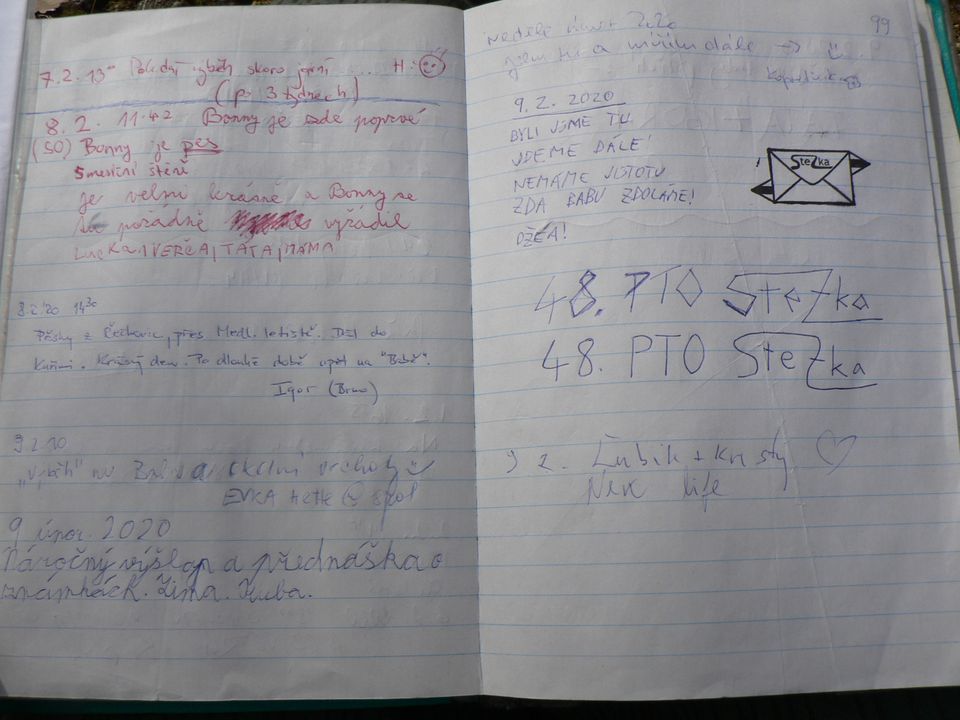 7.2. 13⁰⁰ skoro jarní ... H.
(po 3 týdnech)
8.2. 11.42 Bonny je zde poprvé
(SO) Bonny je pes
5 měsíční štěně
je velmi krásně a Bonny se
pořádně vyřádil
Lucka, VERČA, TÁTA, MAMA
8.2.'20 14³⁰
Pěšky z Čechovic, přes Medl. letiště. Dál do
Kuřimi. Krásný den. Po dlouhé době opět na "Babě".
Igor (Brno)
9 2 20
na okolní vrcholy
EVKA
9 únor. 2020
Náročný výšlap a přednáška o
známkách. Zima. Kuba.
99
neděle únor 2020
jsem tu a mířím dále →
9.2.2020
BYLI JSME TU
JDEME DÁLE!
NEMÁME JISTOTU
ZDA BABU ZDOLÁME!
SteZka
48. PTO SteZka
48. PTO SteZka
9 2. Lubik + Kristy
life